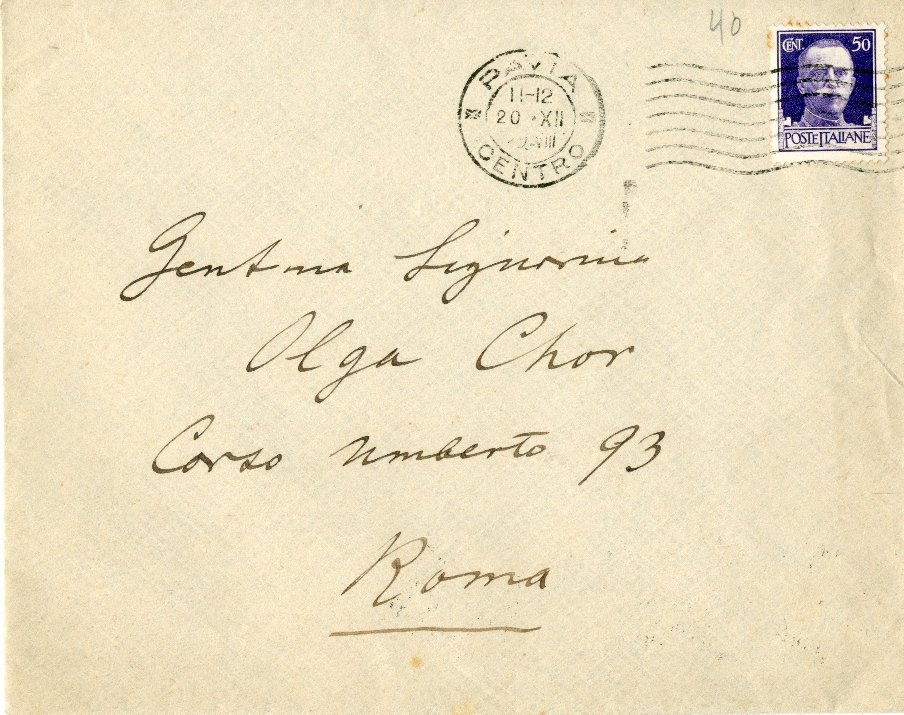 40
CENT. 50
POSTE ITALIANE
PAVIA
11-12
20 · XII
CENTRO
Gent ma Signorina
Olga Chor
Corso Umberto 93
Roma